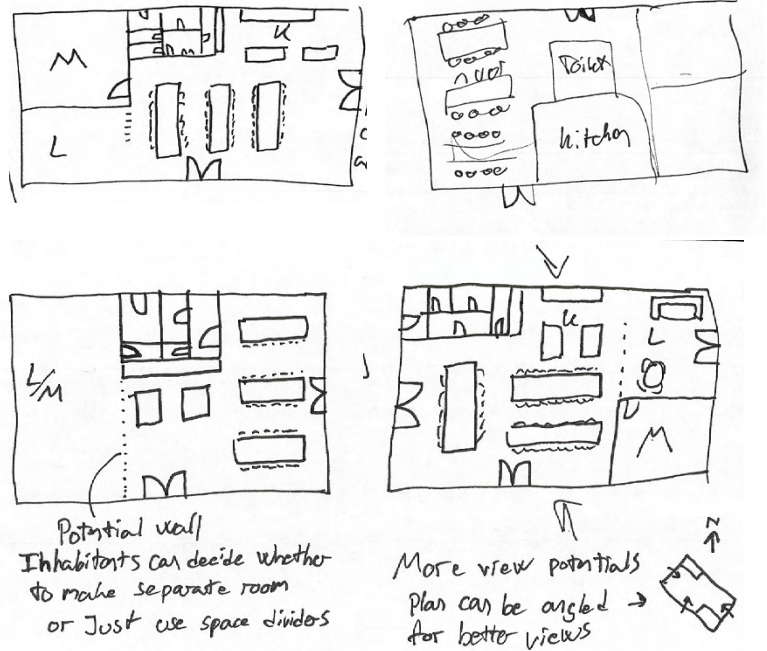 M
K
L
Toilet
kitchen
L/M
K
L
M
Potential wall
Inhabitants can decide whether
to make separate room
or Just use space dividers
N
More view potentials
Plan can be angled
for better views